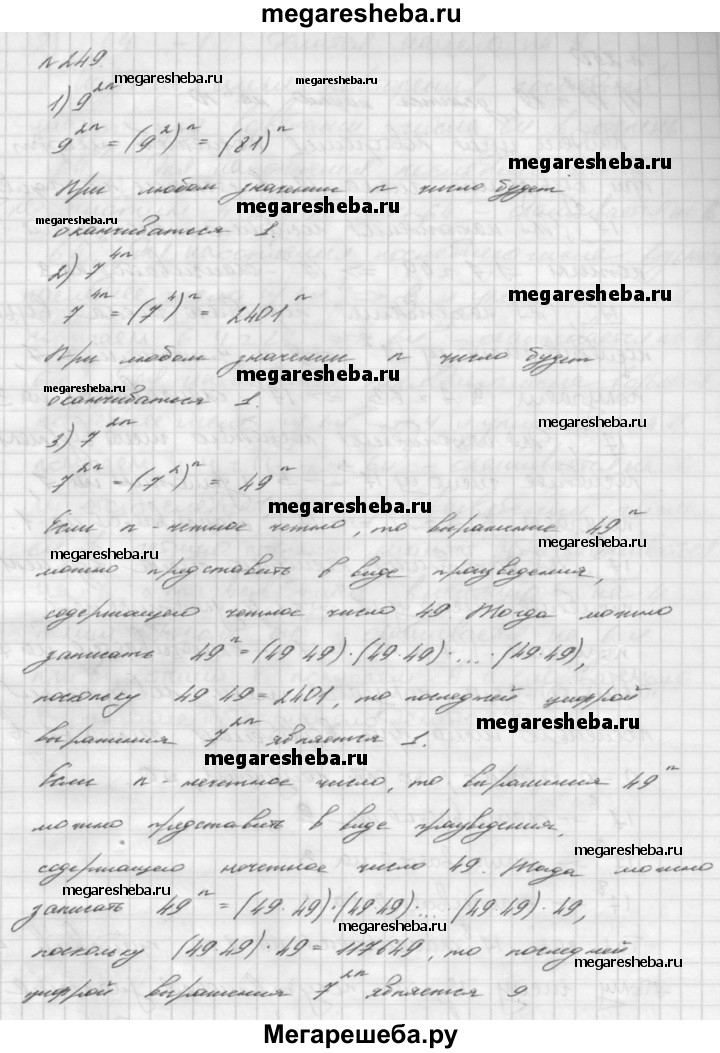 megaresheba.ru
№249.
megaresheba.ru megaresheba.ru
1) 9^{2n}
9^{2n} = (9^2)^n = (81)^n
megaresheba.ru
При любом значении n число будет
megaresheba.ru
megaresheba.ru
оканчиваться 1.
2) 7^{4n}
megaresheba.ru
7^{4n} = (7^4)^n = 2401^n
При любом значении n число будет
megaresheba.ru
megaresheba.ru
оканчиваться 1.
megaresheba.ru
3) 7^{2n}
7^{2n} = (7^2)^n = 49^n
megaresheba.ru
Если n - четное четло, то выражение 49^n
megaresheba.ru
megaresheba.ru
можно представить в виде произведения,
содержащего четное число 49 Тогда можно
записать 49^n = (49 49)·(49·49)·...·(49·49),
поскольку 49 49 = 2401, то последней цифрой
megaresheba.ru
выражения 7^{2n} является 1.
megaresheba.ru
Если n - нечетное число, то выражения 49^n
можно представить в виде произведения,
megaresheba.ru
содержащего нечетное число 49. Тогда можно
megaresheba.ru
записать 49^n = (49·49)·(49·49)·...·(49·49)·49,
поскольку (49·49)·49 = 117649, то последней
megaresheba.ru
цифрой выражения 7^{2n} является 9
Мегарешеба.ру